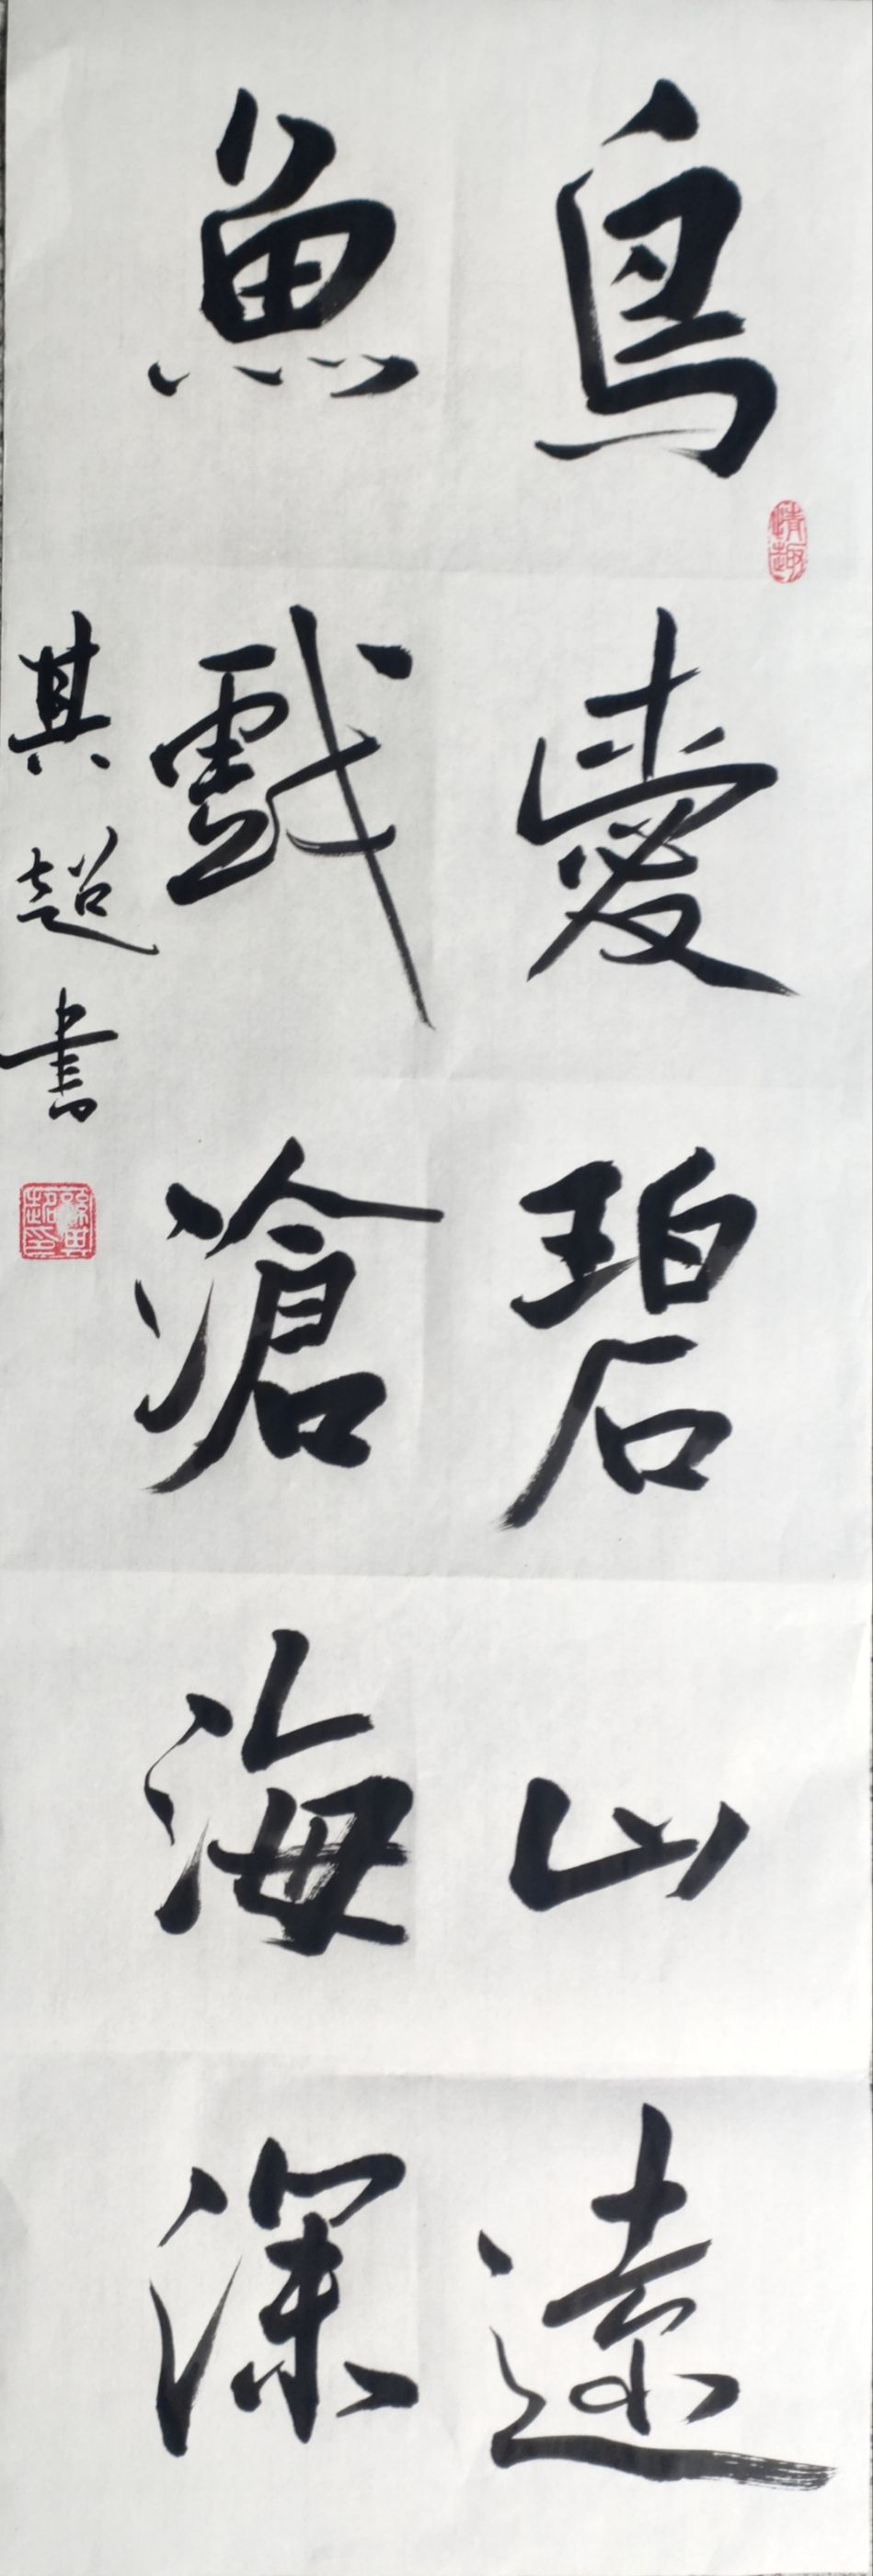 鳥愛碧山遠
魚戲滄海深
其超書
情趣